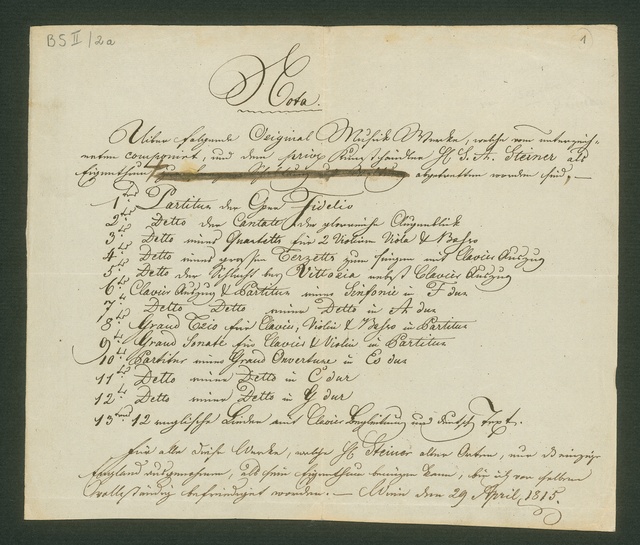 BS II/2a
1
Nota.
Über folgende Original Musick Werke, welche vom unterzeich-
neten componirt, und dem priv. Kunsthändler H. S. A. Steiner als
Eigenthum abgetretten worden sind, —
1te Partitur der Oper Fidelio
2te Detto der Cantate der glorreiche Augenblick
3te Detto eines Quartetts für 2 Violinen Viola & Basso
4te Detto eines grossen Terzetts zum singen mit Clavier Auszug
5te Detto der Schlacht bey Vittoria nebst Clavier Auszug
6te Clavier Auszug & Partitur einer Sinfonie in F dur
7te Detto Detto einer Detto in A dur
8te Grand Trio für Clavier, Violin & Basso in Partitur
9te Grand Sonate für Clavier & Violin in Partitur
10te Partitur einer Grand Ouverture in Es dur
11te Detto einer Detto in C dur
12te Detto einer Detto in G dur
13tens 12 englische Lieder mit Clavier Begleitung und deutsch. Text.
Für alle diese Werke, welche H. Steiner aller Orten, nur
England ausgenohmen, als sein Eigenthum benüzen kann, bin ich von selben
vollständig befriediget worden. — Wien den 29 April, 1815.